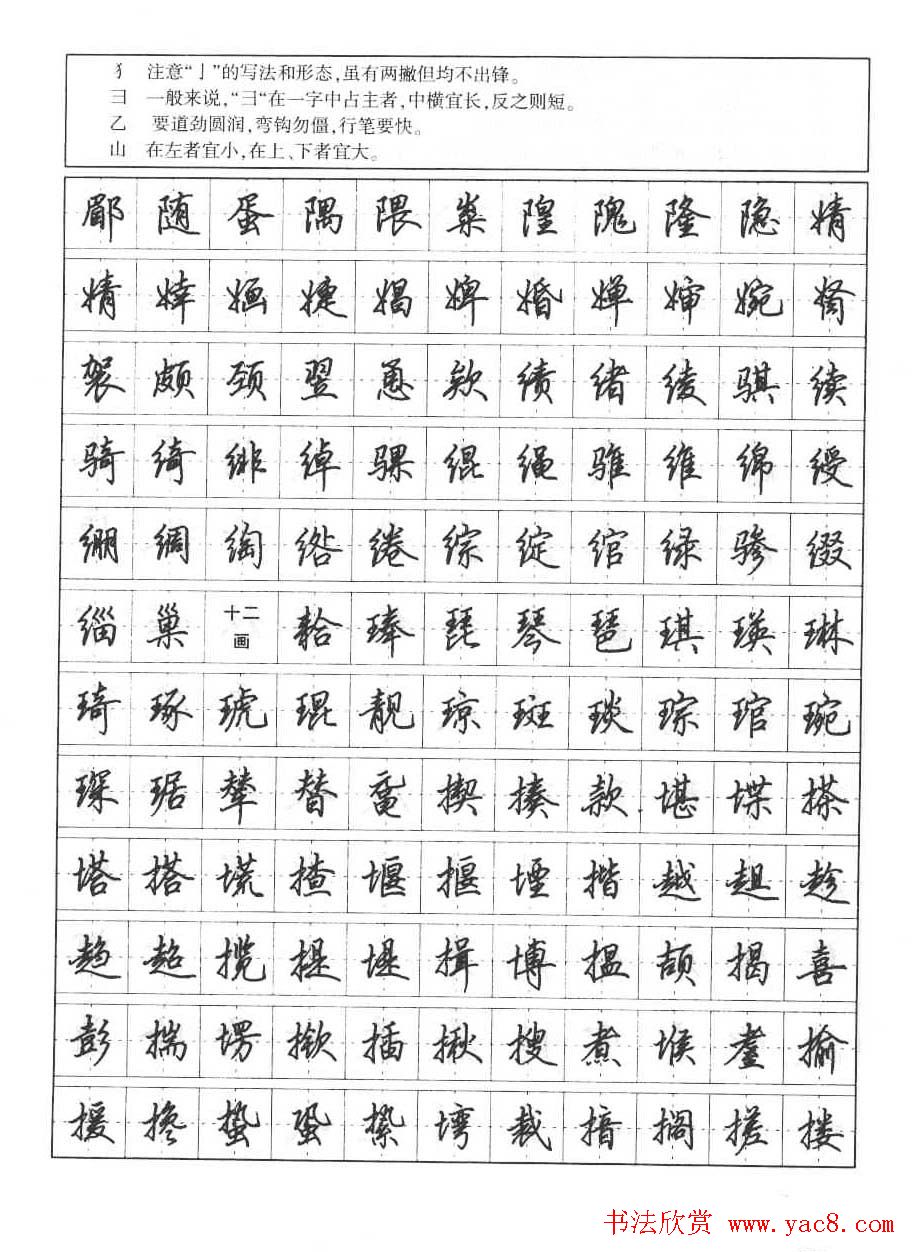 犭 注意“亅”的写法和形态,虽有两撇但均不出锋。
彐 一般来说,“彐“在一字中占主者,中横宜长,反之则短。
乙 要道劲圆润,弯钩勿僵,行笔要快。
山 在左者宜小,在上、下者宜大。
郿 随 蛋 隅 隈 粜 隍 隗 隆 隐 婧
婧 婞 婳 婕 娼 婢 婚 婵 婶 婉 胬
袈 颇 颈 翌 恿 欸 绩 绪 绫 骐 续
骑 绮 绯 绰 骒 绲 绳 骓 维 绵 绶
绷 绸 绹 绺 绻 综 绽 绾 绿 骖 缀
缁 巢 十二画 耠 琫 琵 琴 琶 琪 瑛 琳
琦 琢 琥 琨 靓 琼 斑 琰 琮 琯 琬
琛 琚 辇 替 鼋 揳 揍 款 堪 堞 搽
塔 搭 塃 揸 堰 揠 堙 揩 越 趄 趁
趋 超 揽 提 堤 揖 博 揾 颉 揭 喜
彭 揣 塄 揿 插 揪 搜 煮 堠 耋 揄
援 搀 蛰 蛩 絷 塆 裁 揞 搁 搓 搂
书法欣赏 www.yac8.com